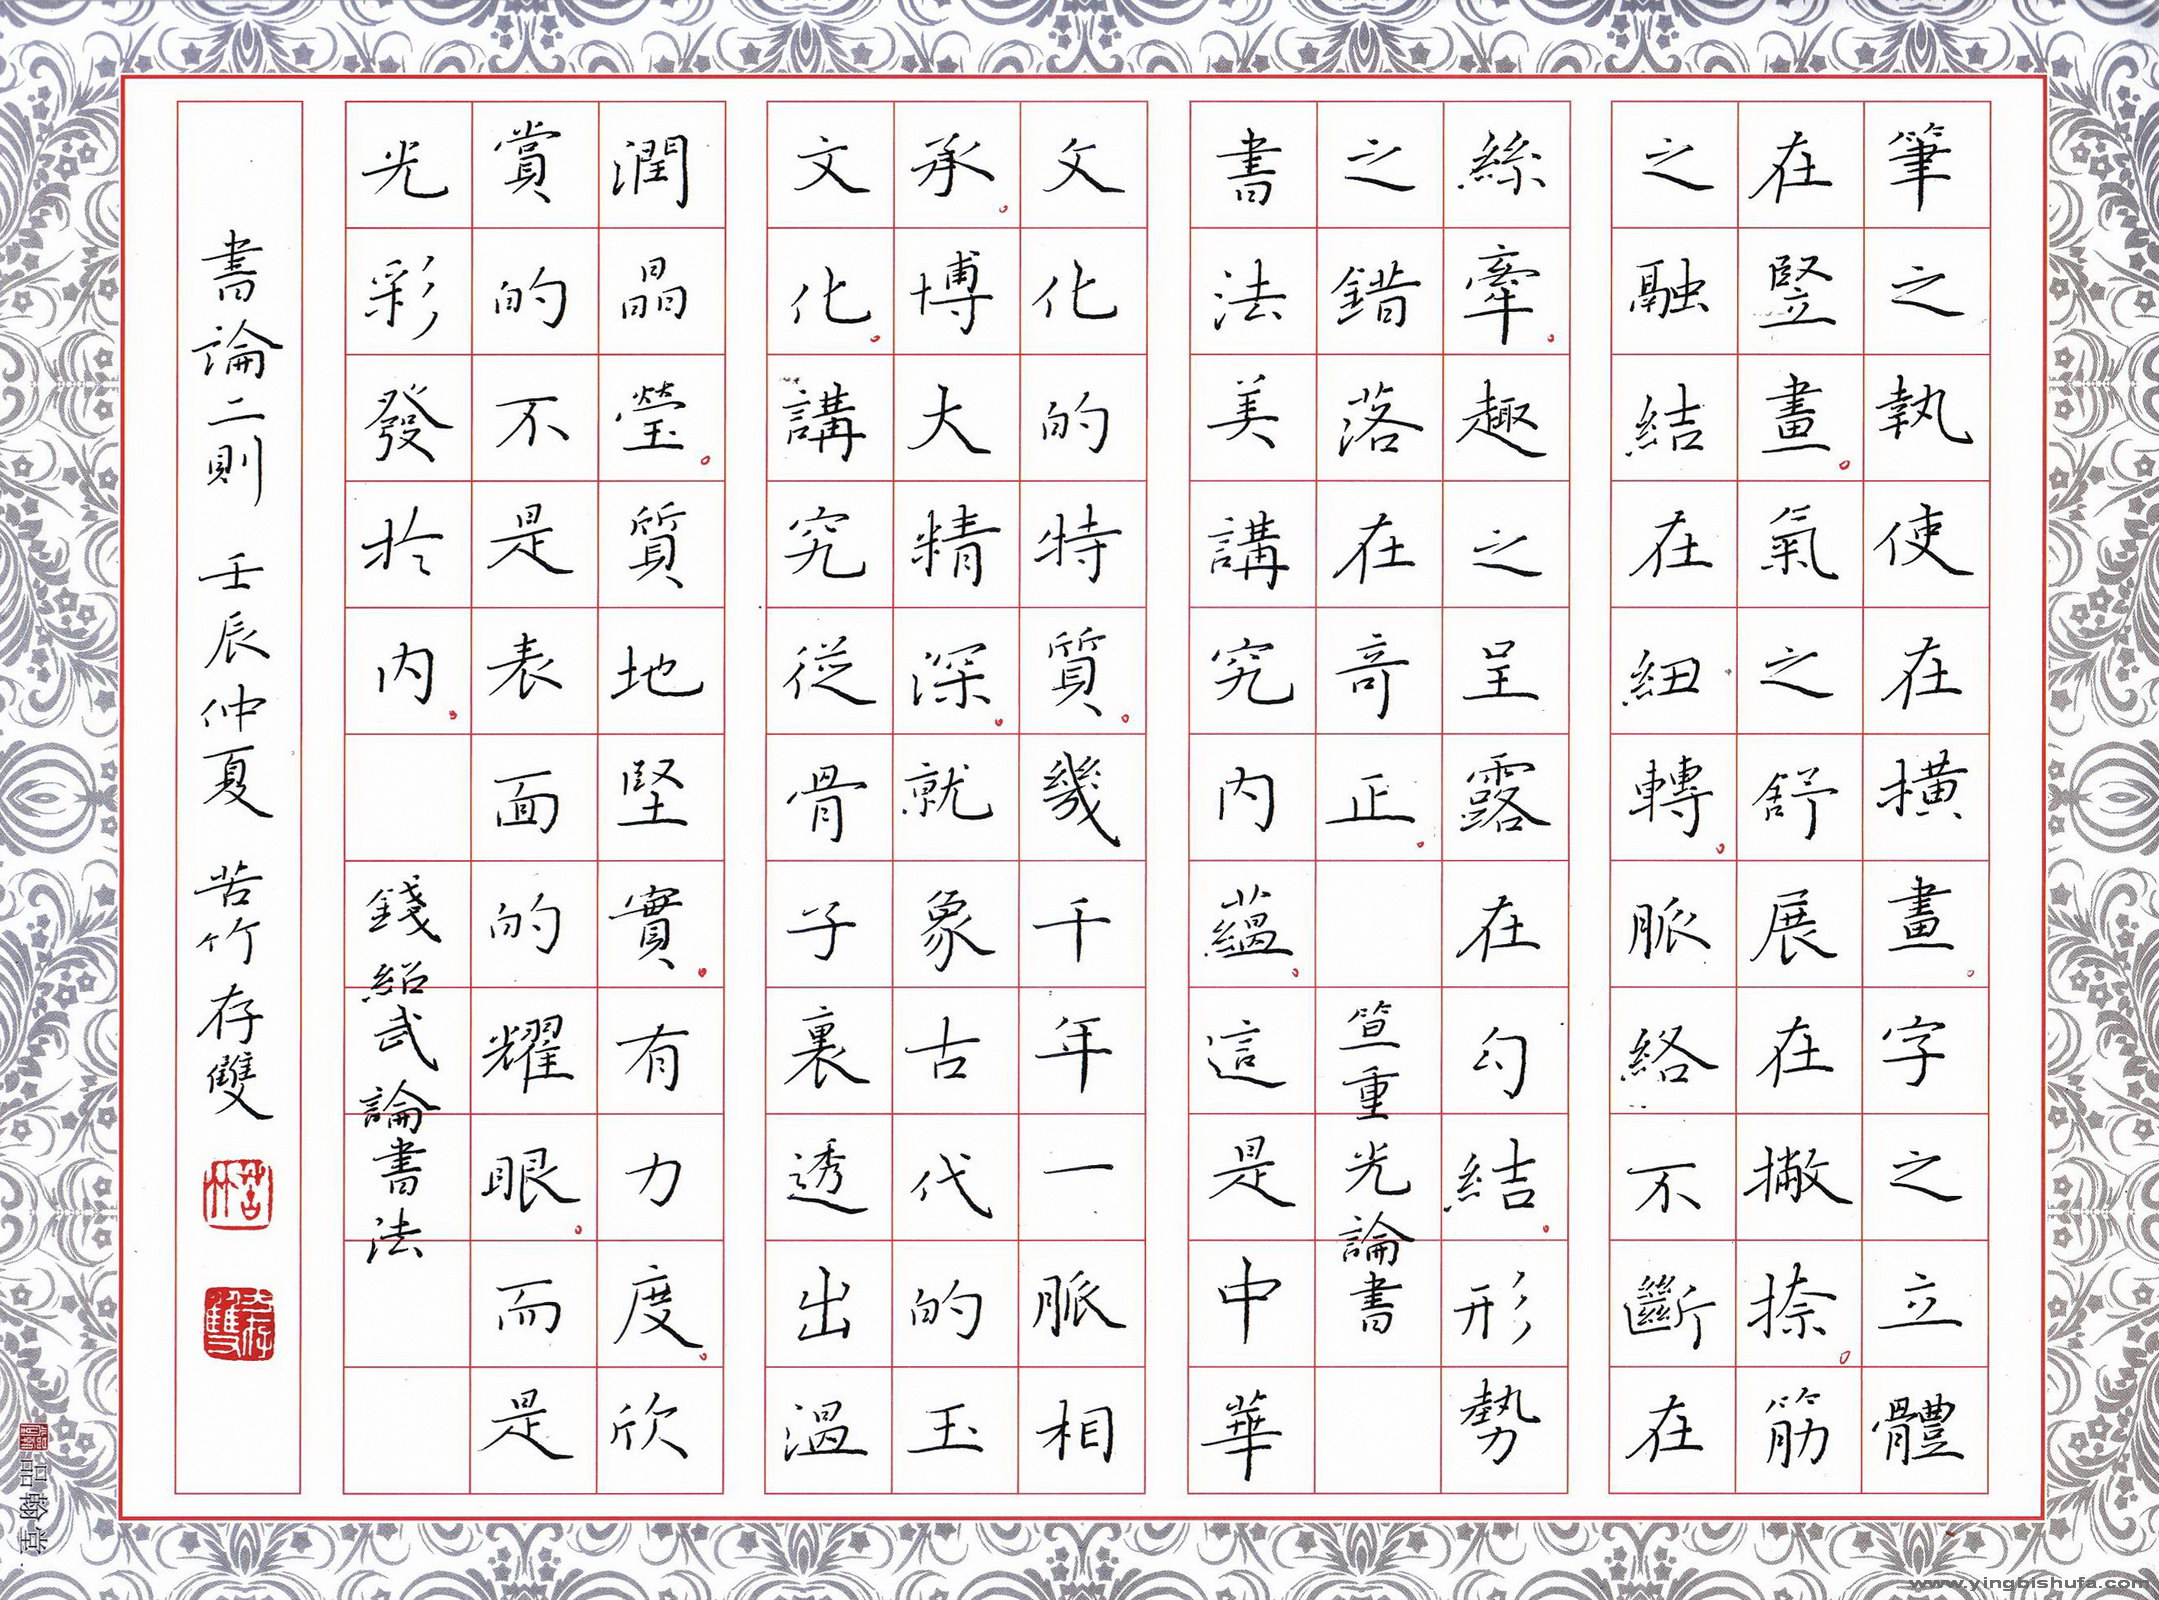 筆之執使在橫畫。字之立體
在豎畫。氣之舒展在撇捺。筋
之融結在紐轉。脈絡不斷在
絲牽。趣之呈露在勾結。形勢
之錯落在奇正。笪重光論書
書法美講究內蘊。這是中華
文化的特質。幾千年一脈相
承。博大精深。就象古代的玉
文化。講究從骨子裏透出溫
潤晶瑩。質地堅實。有力度。欣
賞的不是表面的耀眼。而是
光彩發於內。錢紹武論書法
書論二則 壬辰仲夏 苦竹存雙
苦竹
品翰堂
www.yingbishufa.com